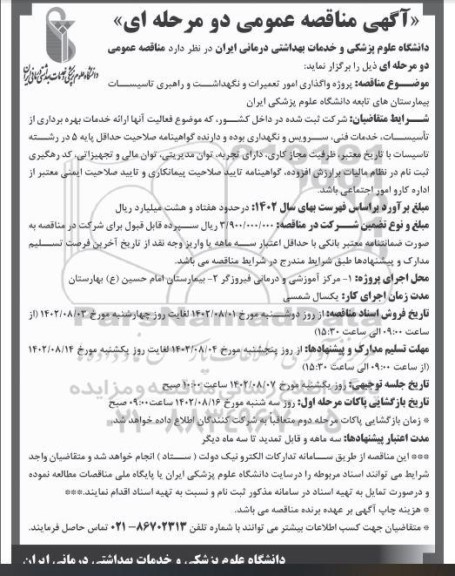 «آگهی مناقصه عمومی دو مرحله ای»
دانشگاه علوم پزشکی و خدمات بهداشتی درمانی ایران
دانشگاه علوم پزشکی و خدمات بهداشتی درمانی ایران در نظر دارد مناقصه عمومی
دو مرحله ای ذیل را برگزار نماید:
موضوع مناقصه: پروژه واگذاری امور تعمیرات و نگهداشت و راهبری تاسیسات
بیمارستان های تابعه دانشگاه علوم پزشکی ایران
شرایط متقاضیان: شرکت ثبت شده در داخل کشور، که موضوع فعالیت آنها ارائه خدمات بهره برداری از
تأسیسات، خدمات فنی، سرویس و نگهداری بوده و دارنده گواهینامه صلاحیت حداقل پایه ۵ در رشته
تاسیسات با تاریخ معتبر، ظرفیت مجاز کاری، دارای تجربه، توان مدیریتی، توان مالی و تجهیزاتی، کد رهگیری
ثبت نام در نظام مالیات بر ارزش افزوده، گواهینامه تایید صلاحیت پیمانکاری و تایید صلاحیت ایمنی معتبر از
اداره کار و امور اجتماعی باشد.
مبلغ برآورد براساس فهرست بهای سال ۱۴۰۲: درحدود هفتاد و هشت میلیارد ریال
مبلغ و نوع تضمین شرکت در مناقصه: ۳/۹۰۰/۰۰۰/۰۰۰ ریال سپرده قابل قبول برای شرکت در مناقصه به
صورت ضمانتنامه معتبر بانکی با حداقل اعتبار سه ماهه یا واریز وجه نقد از تاریخ آخرین فرصت تسلیم
مدارک و پیشنهادها طبق شرایط مندرج در شرایط مناقصه می باشد.
محل اجرای پروژه: ۱- مرکز آموزشی و درمانی فیروزگر ۲- بیمارستان امام حسین (ع) بهارستان
مدت زمان اجرای کار: یکسال شمسی
تاریخ فروش اسناد مناقصه: از روز دوشنبه مورخ ۱۴۰۲/۰۸/۰۱ لغایت روز چهارشنبه مورخ ۱۴۰۲/۰۸/۰۳ (از
ساعت ۰۹:۰۰ الی ساعت ۱۵:۳۰)
مهلت تسلیم مدارک و پیشنهادها: از روز پنجشنبه مورخ ۱۴۰۲/۰۸/۰۴ لغایت روز یکشنبه مورخ ۱۴۰۲/۰۸/۱۴
(از ساعت ۰۹:۰۰ الی ساعت ۱۵:۳۰)
تاریخ جلسه توجیهی: روز یکشنبه مورخ ۱۴۰۲/۰۸/۰۷ ساعت ۱۰:۰۰ صبح
تاریخ بازگشایی پاکات مرحله اول: روز سه شنبه مورخ ۱۴۰۲/۰۸/۱۶ ساعت ۰۹:۰۰ صبح
* زمان بازگشایی پاکات مرحله دوم متعاقباً به شرکت کنندگان اطلاع داده خواهد شد.
مدت اعتبار پیشنهادها: سه ماهه و قابل تمدید تا سه ماه دیگر
*** این مناقصه از طریق سامانه تدارکات الکترونیک دولت (ستاد) انجام خواهد شد و متقاضیان واجد
شرایط می توانند اسناد مربوطه را درسایت دانشگاه علوم پزشکی ایران یا پایگاه ملی مناقصات مطالعه نموده
و درصورت تمایل به تهیه اسناد در سامانه مذکور ثبت نام و نسبت به تهیه اسناد اقدام نمایند.***
* هزینه چاپ آگهی بر عهده برنده مناقصه می باشد.
* متقاضیان جهت کسب اطلاعات بیشتر می توانند با شماره تلفن ۸۶۷۰۲۳۱۳-۰۲۱ تماس حاصل فرمایند.
دانشگاه علوم پزشکی و خدمات بهداشتی درمانی ایران